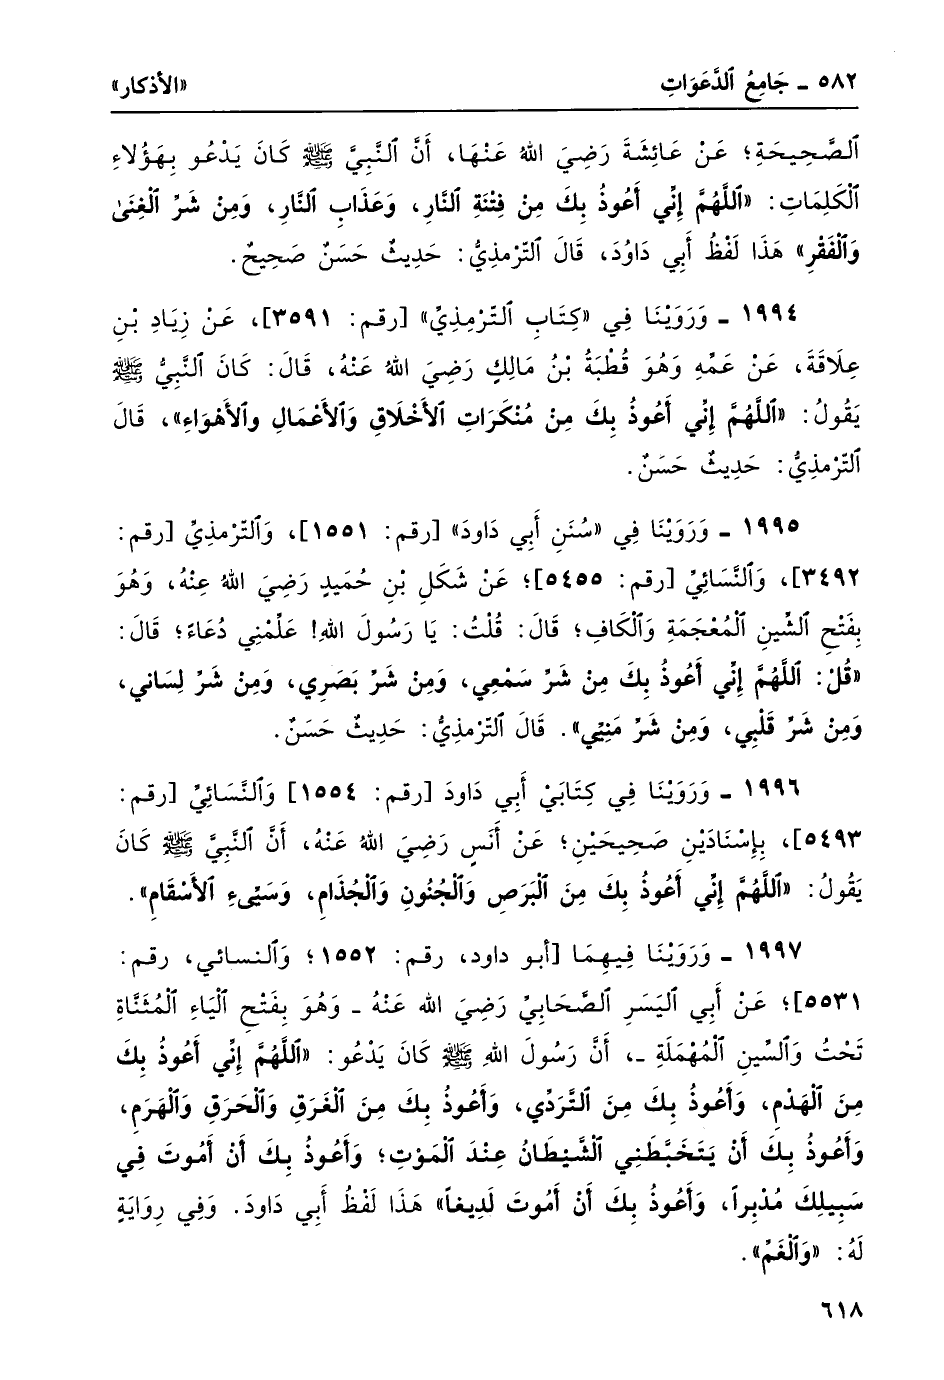 ٥٨٢ ـ جَامِعُ ٱلدَّعَوَاتِ «الأذكار»
ٱلصَّحِيحَةِ؛ عَنْ عَائِشَةَ رَضِيَ اللهُ عَنْهَا، أَنَّ ٱلنَّبِيَّ ﷺ كَانَ يَدْعُو بِهَؤُلاءِ
ٱلْكَلِمَاتِ: «ٱللَّهُمَّ إِنِّي أَعُوذُ بِكَ مِنْ فِتْنَةِ ٱلنَّارِ، وَعَذَابِ ٱلنَّارِ، وَمِنْ شَرِّ ٱلْغِنَىٰ
وَٱلْفَقْرِ» هَذَا لَفْظُ أَبِي دَاوُدَ، قَالَ ٱلتِّرْمِذِيُّ: حَدِيثٌ حَسَنٌ صَحِيحٌ.
١٩٩٤ ـ وَرَوَيْنَا فِي «كِتَابِ ٱلتِّرْمِذِيِّ» [رقم: ٣٥٩١]، عَنْ زِيَادِ بْنِ
عِلَاقَةَ، عَنْ عَمِّهِ وَهُوَ قُطْبَةُ بْنُ مَالِكٍ رَضِيَ اللهُ عَنْهُ، قَالَ: كَانَ ٱلنَّبِيُّ ﷺ
يَقُولُ: «ٱللَّهُمَّ إِنِّي أَعُوذُ بِكَ مِنْ مُنْكَرَاتِ ٱلأَخْلَاقِ وَٱلأَعْمَالِ وٱلأَهْوَاءِ»، قَالَ
ٱلتِّرْمِذِيُّ: حَدِيثٌ حَسَنٌ.
١٩٩٥ ـ وَرَوَيْنَا فِي «سُنَنِ أَبِي دَاودَ» [رقم: ١٥٥١]، وَٱلتِّرْمِذِيِّ [رقم:
٣٤٩٢]، وَٱلنَّسَائِيِّ [رقم: ٥٤٥٥]؛ عَنْ شَكَلِ بْنِ حُمَيدٍ رَضِيَ اللهُ عِنْهُ، وَهُوَ
بِفَتْحِ ٱلشِّينِ ٱلْمُعْجَمَةِ وَٱلْكَافِ؛ قَالَ: قُلْتُ: يَا رَسُولَ اللهِ! عَلِّمْنِي دُعَاءً؛ قَالَ:
«قُلْ: ٱللَّهُمَّ إِنِّي أَعُوذُ بِكَ مِنْ شَرِّ سَمْعِي، وَمِنْ شَرِّ بَصَرِي، وَمِنْ شَرِّ لِسَاني،
وَمِنْ شَرِّ قَلْبِي، وَمِنْ شَرِّ مَنِيِّي». قَالَ ٱلتِّرْمِذِيُّ: حَدِيثٌ حَسَنٌ.
١٩٩٦ ـ وَرَوَيْنَا فِي كِتَابَيْ أَبِي دَاودَ [رقم: ١٥٥٤] وَٱلنَّسَائِيِّ [رقم:
٥٤٩٣]، بِإِسْنَادَيْنِ صَحِيحَيْنِ؛ عَنْ أَنَسٍ رَضِيَ اللهُ عَنْهُ، أَنَّ ٱلنَّبِيَّ ﷺ كَانَ
يَقُولُ: «ٱللَّهُمَّ إِنِّي أَعُوذُ بِكَ مِنَ ٱلْبَرَصِ وَٱلْجُنُونِ وَٱلْجُذَامِ، وَسَيِّىءِ ٱلأَسْقَامِ».
١٩٩٧ ـ وَرَوَيْنَا فِيهِمَا [أبو داود، رقم: ١٥٥٢؛ وَٱلنسائي، رقم:
٥٥٣١]؛ عَنْ أَبِي ٱليَسَرِ ٱلصَّحَابِيِّ رَضِيَ الله عَنْهُ ـ وَهُوَ بِفَتْحِ ٱلْيَاءِ ٱلْمُثَنَّاةِ
تَحْتُ وَٱلسِّينِ ٱلْمُهْمَلَةِ ـ، أَنَّ رَسُولَ اللهِ ﷺ كَانَ يَدْعُو: «ٱللَّهُمَّ إِنِّي أَعُوذُ بِكَ
مِنَ ٱلْهَدْمِ، وَأَعُوذُ بِكَ مِنَ ٱلتَّرَدِّي، وَأَعُوذُ بِكَ مِنَ ٱلْغَرَقِ وَٱلْحَرَقِ وَٱلْهَرَمِ،
وَأَعُوذُ بِكَ أَنْ يَتَخَبَّطَنِي ٱلْشَّيطَانُ عِنْدَ ٱلْمَوْتِ؛ وَأَعُوذُ بِكَ أَنْ أَمُوتَ فِي
سَبِيلِكَ مُدْبِراً، وَأَعُوذُ بِكَ أَنْ أَمُوتَ لَدِيغاً» هَذَا لَفْظُ أَبِي دَاودَ. وَفِي رِوَايَةٍ
لَهُ: «وَٱلْغَمِّ».
٦١٨